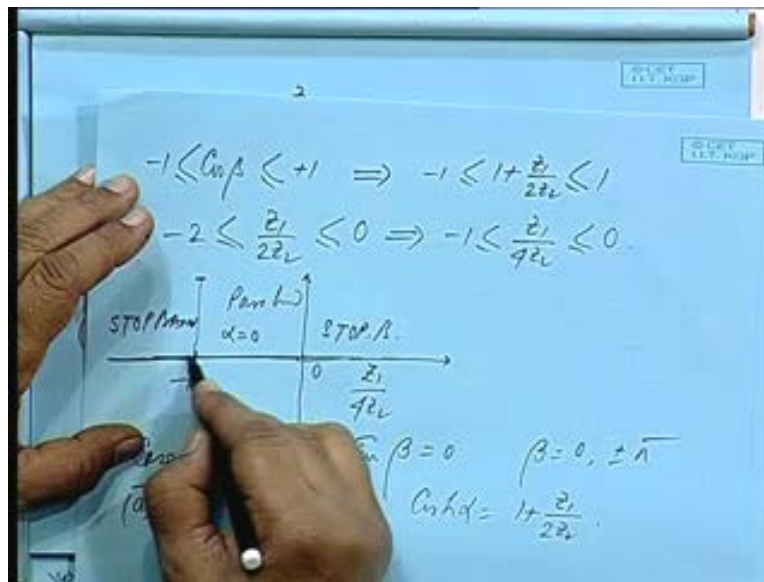 2
© CET
I.I.T. KGP
© CET
I.I.T. KGP
-1 ≤ Cos β ≤ +1 ⇒ -1 ≤ 1 + z₁/2z₂ ≤ 1
-2 ≤ z₁/2z₂ ≤ 0 ⇒ -1 ≤ z₁/4z₂ ≤ 0.
STOP BAND Pass band STOP. B.
α=0
0 z₁/4z₂
β = 0 β = 0, ± π
Cosh α = 1 + z₁/2z₂.